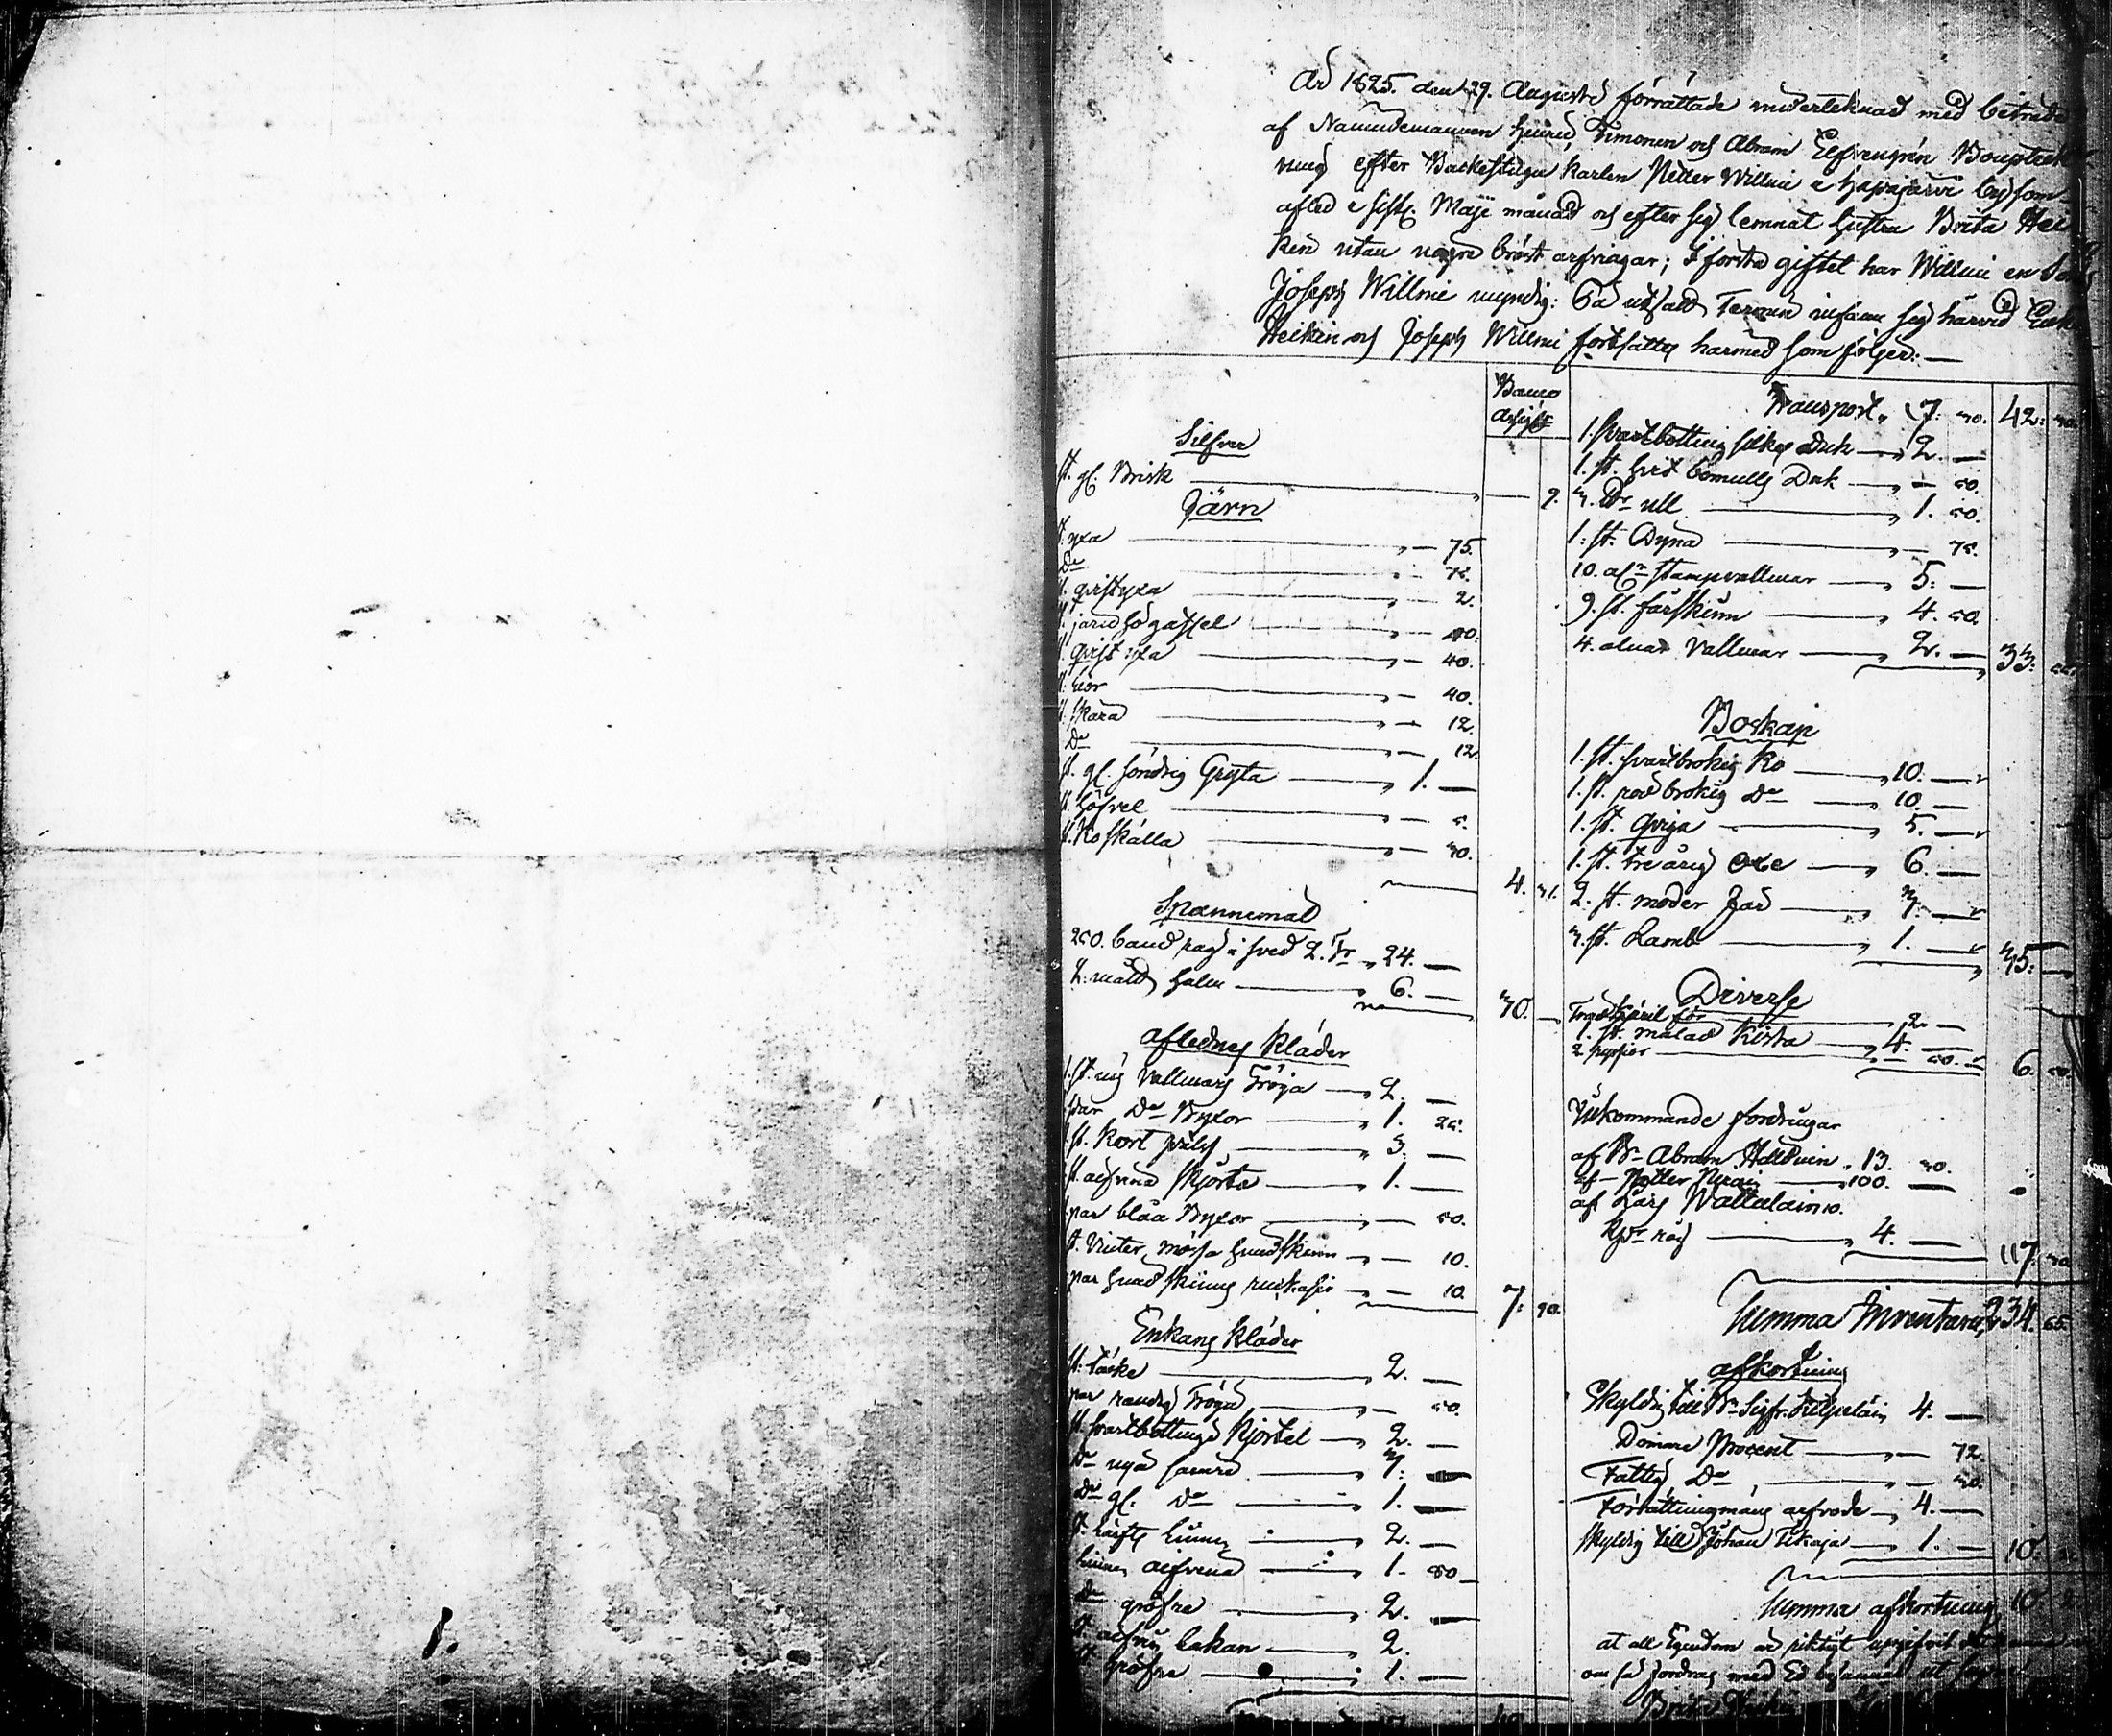 År 1825. den 29. Augusti förrättade underteknad med beträde
af Nämndemannen Timonen och Abram Elfvengrén Bouptekn
ning efter Backestugu karlen Petter Willmi i Hapajärvi by som
afled i sistl. Maji månad och efter sig lemnat hustru Brita Hei
kin utan några bröst arfvingar; I första giftet har Willmi en Son
Joseph Willmi myndig: På utsatt Termin infann sig härvid Enk
Heikin och Joseph Willmi fortsattes härmed som följer: —
Banco
Assigt:
Silfver
st. gl. Brisk — 9.
Järn
st. yxa — 75.
Do — 75.
st. qvistyxa — 2.
st. järnhögaffel — 40.
st. qvist yxa — 40.
st. Lior — 40.
st. skära — 12.
Do — 12.
st. gl. söndrig Gryta — 1. —
st. Höfvel — 5.
st. Koskälla — 30.
4. 31.
Spannemål
250. band råg i sved 2. Tr 24. —
2. halm — 6. —
30. —
Aflednes kläder
1. st. ny vallmars Tröja — 2. —
par Do Byxor — 1. 25.
st. kort päls — 3. —
st. aifvina skjorta — 1. —
par blåa Byxor — 50.
st. Vinter mössa hundskinn — 10.
par hundskinns rukasir — 10.
7. 90.
Enkans kläder
st. Täcke — 2. —
par randig Tröja — 50.
st. svartbottnige Kjortel — 2. —
Do nya sämre — 3. —
Do gl. Do — 1. —
st. Lärfts linne — 2. —
linne aifvina — 1. 50
Do gröfre — 2. —
st. aifvin lakan — 2.
st. gröfre — 1. —
Transport. 17: 30. 42: 30.
1. svartbottnig silkes Duk — 2. —
1. st. hvit bomulls Duk — 50.
3. ull — 1. 50.
1. st. Dyna — 75.
10. aln stampvallmar — 5: —
9. st. fårskinn — 4. 50.
4. alnar Vallmar — 2. —
33: 55.
Boskap
1. st. svartbrokig Ko — 10. —
1. st. rödbrokig Do — 10. —
1. st. Qviga — 5. —
1. st. treårig Oxe — 6. —
2. st. moder får — 3. —
3. st. Lamb — 1. —
35: —
Diverse
Trädkäril för — 2 —
1. st. målad Kista — 4. —
2. — 50.
6. 50.
Utkommande fordringar
af Bn Abram Halduin 13. 30.
af Petter — 100. —
af Lars Wattalain 10.
Kpr råg — 4. —
117. 30
Summa Inventarie 234. 65.
Afkortning
Skyldig till Bn Sigfr. Kilpeläin 4. —
Domare Procent — 72
Fattig Do — 30.
Förrättningmäns arfvode 4. —
Skyldig till Johan Tikaja — 1. —
10.
Summa afkortning 10.
at all Egendom är riktigt upgifvit
om så fordras med Ed
Brita Heikin